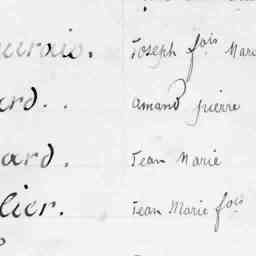 urais. Joseph fois Marie
ard. . amand pierre
ard. Jean Marie
lier. Jean Marie fois